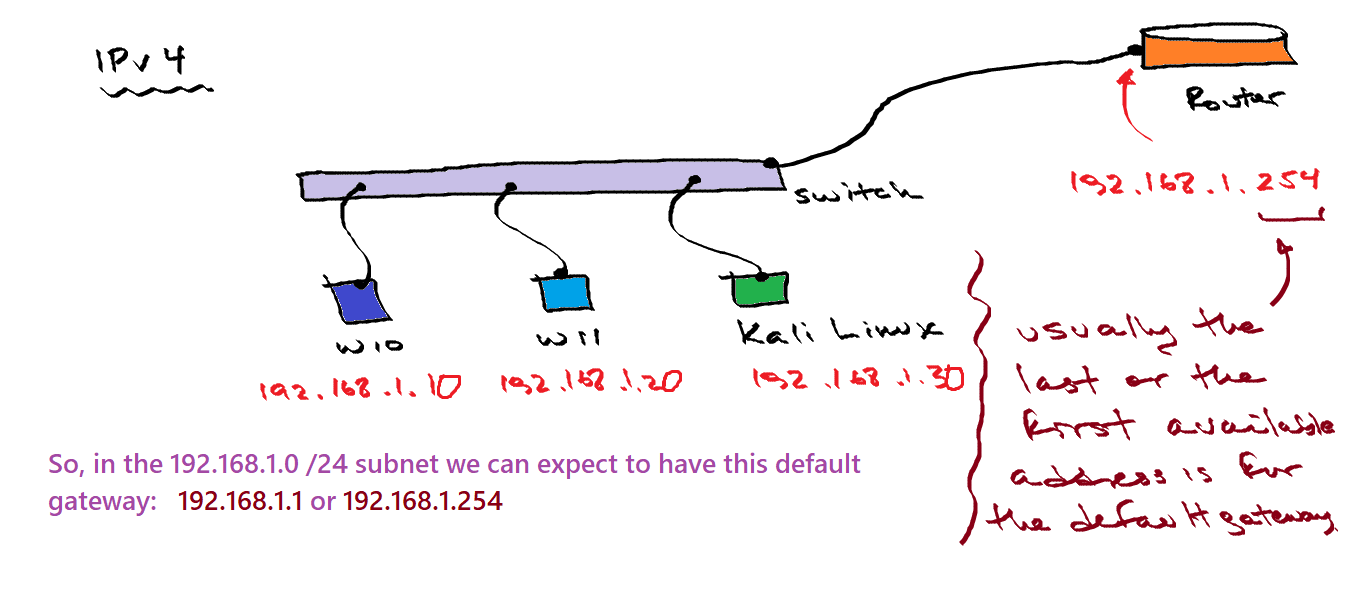 IPv4
Router
192.168.1.254
switch
W10
W11
Kali Linux
192.168.1.10
192.168.1.20
192.168.1.30
usually the
last or the
first available
address is for
the default gateway
So, in the 192.168.1.0 /24 subnet we can expect to have this default
gateway: 192.168.1.1 or 192.168.1.254